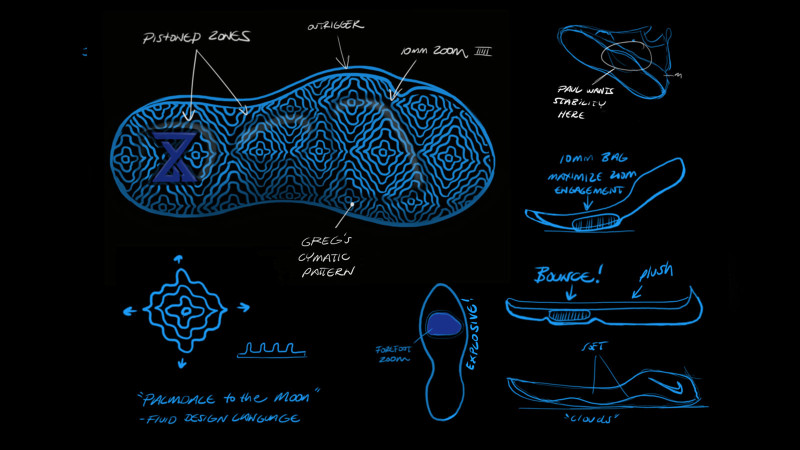 PISTONED ZONES
OUTRIGGER
10MM ZOOM
PAUL WANTS
STABILITY
HERE
10MM BAG
MAXIMIZE ZOOM
ENGAGEMENT
GREG'S
CYMATIC
PATTERN
BOUNCE!
PLUSH
FOREFOOT
ZOOM
EXPLOSIVE!
SOFT
"CLOUDS"
"PALMDALE to the MOON"
- FLUID DESIGN LANGUAGE